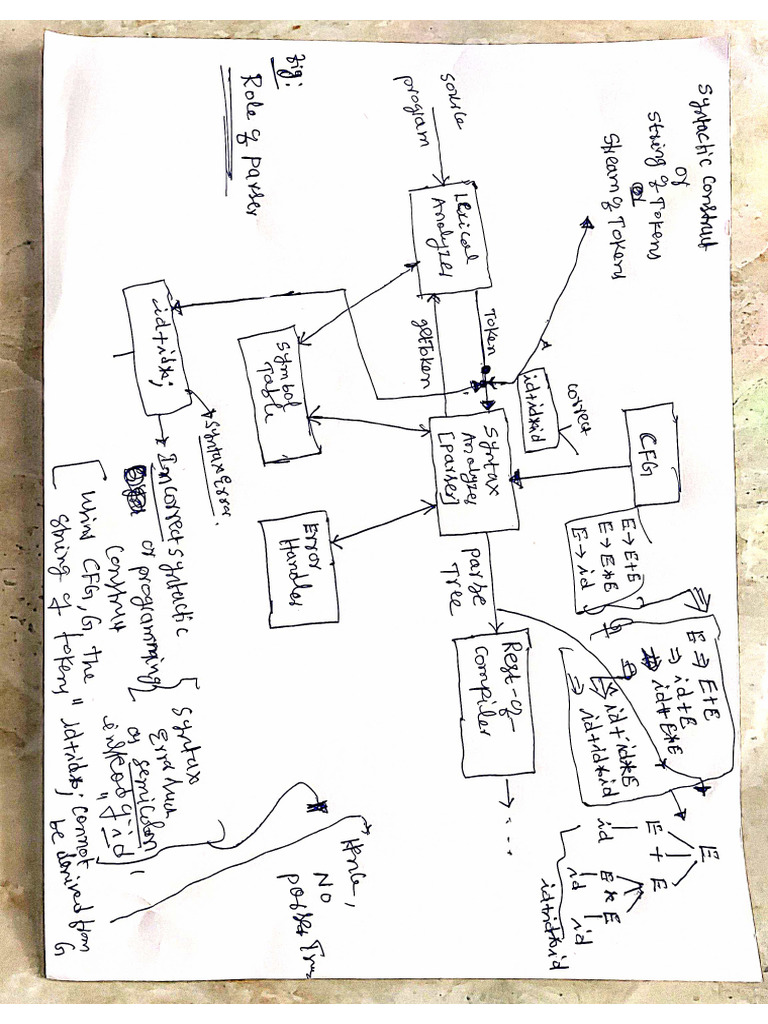 Syntactic Construct
or
String of Tokens
or
Stream of Tokens
Source
program
Lexical
Analyzer
Token
getToken
id+id*id
correct
CFG
E → E+E
E → E*E
E → id
G
E ⇒ E+E
⇒ id+E
⇒ id+E*E
⇒ id+id*E
⇒ id+id*id
Syntax
Analyzer
[parser]
parse
Tree
Rest-of-
Compiler
...
E
E + E
id E * E
id id
id+id*id
Symbol
Table
Error
Handler
id+id*;
Syntax Error.
Incorrect syntactic
Construct
or programming
Syntax
Error
semicolon
"id"
[Using CFG, G the
string of tokens "id+id*; cannot
be derived from
G
Hence,
No
parse Tree
Fig:
Role of parser